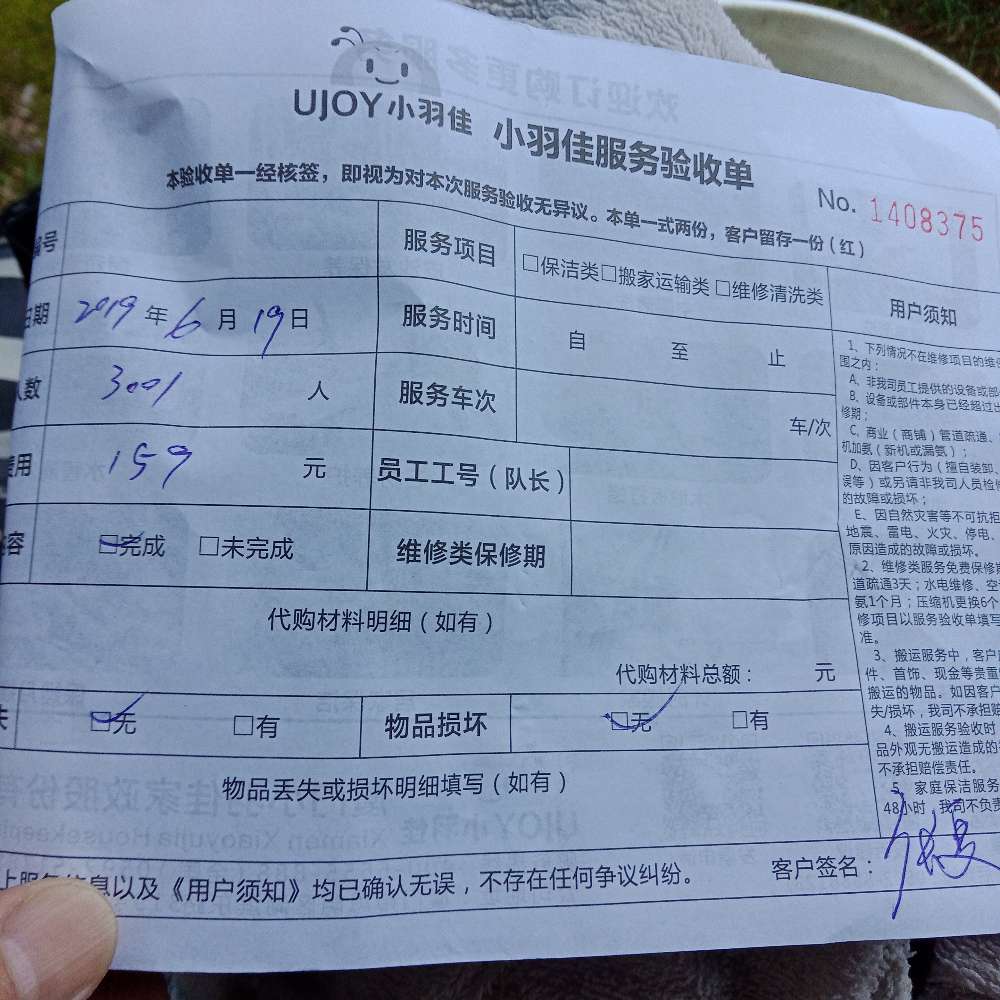 UJOY小羽佳 小羽佳服务验收单
本验收单一经核签，即视为对本次服务验收无异议。本单一式两份，客户留存一份（红）
No. 1408375
编号
服务项目 □保洁类□搬家运输类 □维修清洗类
日期 2019 年 6 月 19 日
服务时间 自 至 止
人数 3001 人
服务车次 车/次
费用 159 元
员工工号（队长）
容 □完成 □未完成
维修类保修期
代购材料明细（如有）
代购材料总额： 元
失 □无 □有
物品损坏 □无 □有
物品丢失或损坏明细填写（如有）
上服务信息以及《用户须知》均已确认无误，不存在任何争议纠纷。
客户签名：
用户须知
1、下列情况不在维修项目的维保
围之内：
A、非我司员工提供的设备或部
B、设备或部件本身已经超过出
修期；
C、商业（商铺）管道疏通、
机加氨（新机或漏氨）；
D、因客户行为（擅自装卸、
误等）或另请非我司人员检修
的故障或损坏；
E、因自然灾害等不可抗拒
地震、雷电、火灾、停电、
原因造成的故障或损坏。
2、维修类服务免费保修期
道疏通3天；水电维修、空
氨1个月；压缩机更换6个
修项目以服务验收单填写
准。
3、搬运服务中，客户
件、首饰、现金等贵重
搬运的物品。如因客户
失/损坏，我司不承担赔
4、搬运服务验收时
品外观无搬运造成的
不承担赔偿责任。
5、家庭保洁服务
48小时，我司不负责